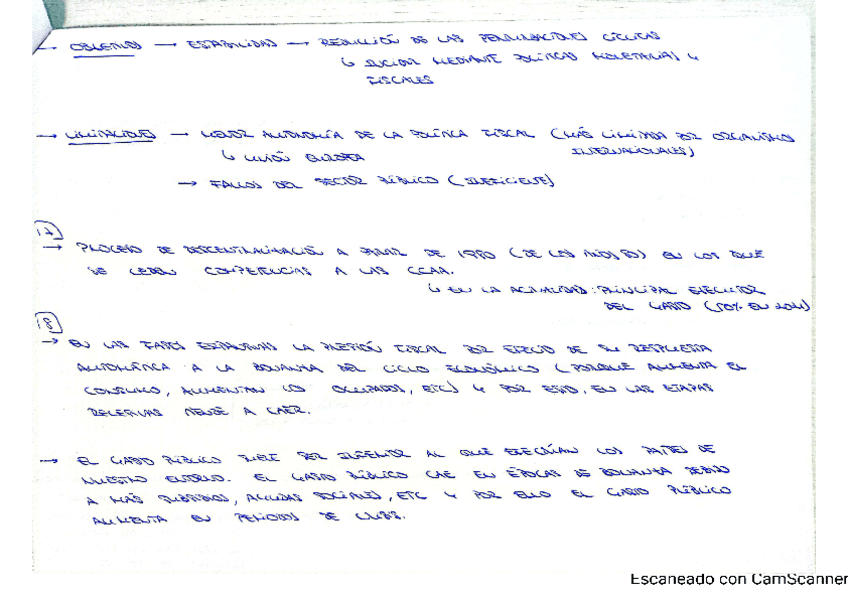 → OBJETIVOS → ESTABILIDAD → REDUCCIÓN DE LAS PERTURBACIONES CÍCLICAS
↳ SUCIDE MEDIANTE POLÍTICAS MONETARIAS Y
FISCALES
→ LIMITACIONES → MENOR AUTONOMÍA DE LA POLÍTICA FISCAL (MÁS LIMITADA POR ORGANISMOS
INTERNACIONALES)
↳ UNIÓN EUROPEA
→ FALLOS DEL SECTOR PÚBLICO (INEFICIENTE)
17
→ PROCESO DE DESCENTRALIZACIÓN A PARTIR DE 1980 (DE LOS AÑOS 80) EN LOS QUE
SE CEDEN COMPETENCIAS A LAS CCAA.
↳ EN LA ACTUALIDAD: PRINCIPAL EJECUTOR
DEL GASTO (50% EN 2021)
18
→ EN LAS FASES EXPANSIVAS LA PRESIÓN FISCAL POR EFECTO DE SU RESPUESTA
AUTOMÁTICA A LA BONANZA DEL CICLO ECONÓMICO (PORQUE AUMENTA EL
CONSUMO, AUMENTAN LOS OCUPADOS, ETC) Y POR ESO, EN LAS ETAPAS
RECESIVAS TIENDE A CAER.
→ EL GASTO PÚBLICO SUELE SER INFERIOR AL QUE EJECUTAN LOS PAÍSES DE
NUESTRO ENTORNO. EL GASTO PÚBLICO CAE EN ÉPOCAS DE BONANZA DEBIDO
A MÁS SUBSIDIOS, AYUDAS SOCIALES, ETC Y POR ELLO EL GASTO PÚBLICO
AUMENTA EN PERIODOS DE CRISIS.
Escaneado con CamScanner